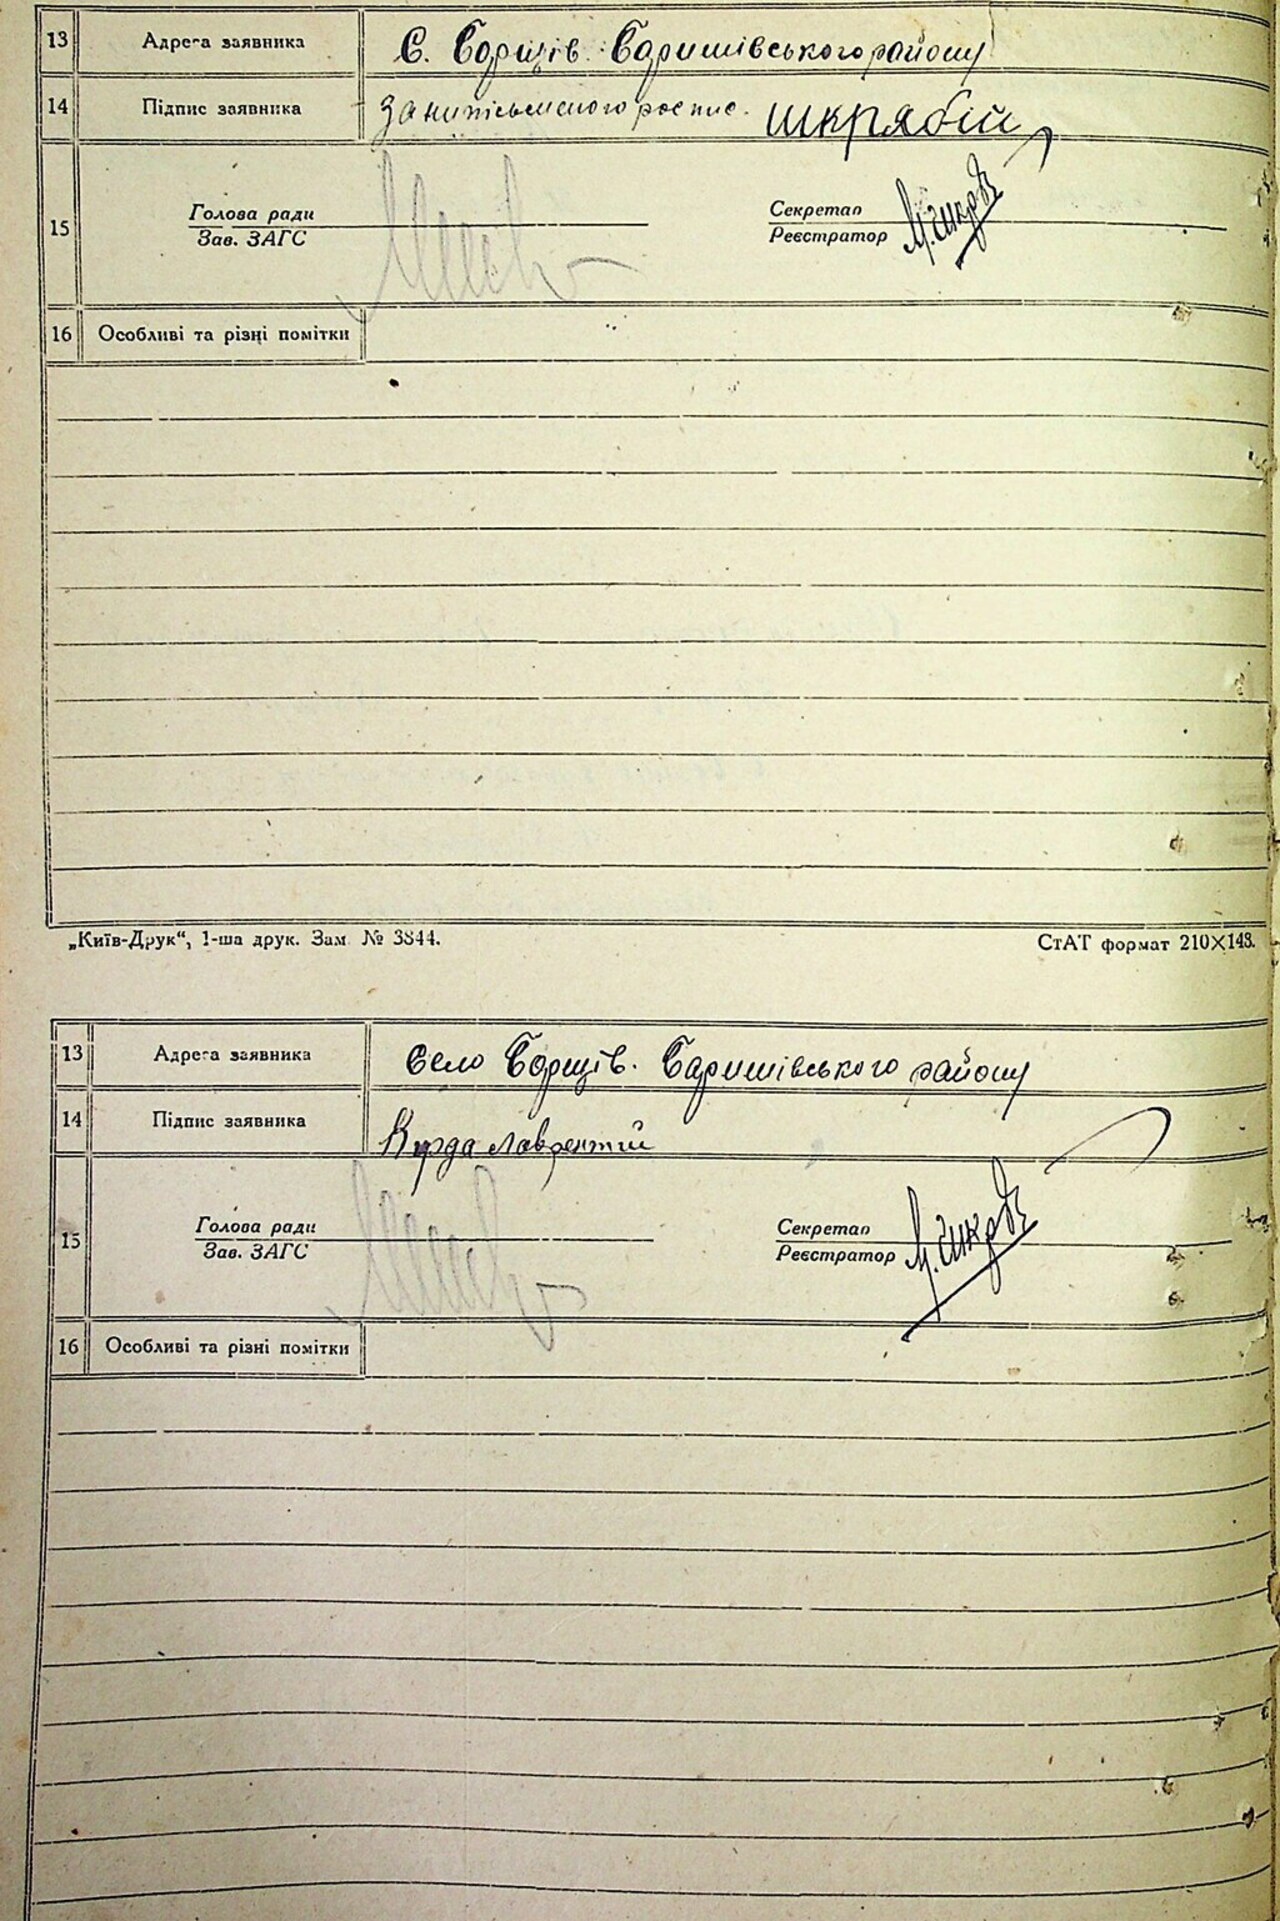 13 Адреса заявника с. Борщів Баришівського району
14 Підпис заявника За нипісьменого роспис. шкрябій
15 Голова ради Секретар
Зав. ЗАГС Реєстратор
16 Особливі та різні помітки
„Київ-Друк“, 1-ша друк. Зам. № 3844. СтАТ формат 210×148.
13 Адреса заявника Село Борщів. Баришівського району
14 Підпис заявника Курда Лаврентій
15 Голова ради Секретар
Зав. ЗАГС Реєстратор
16 Особливі та різні помітки